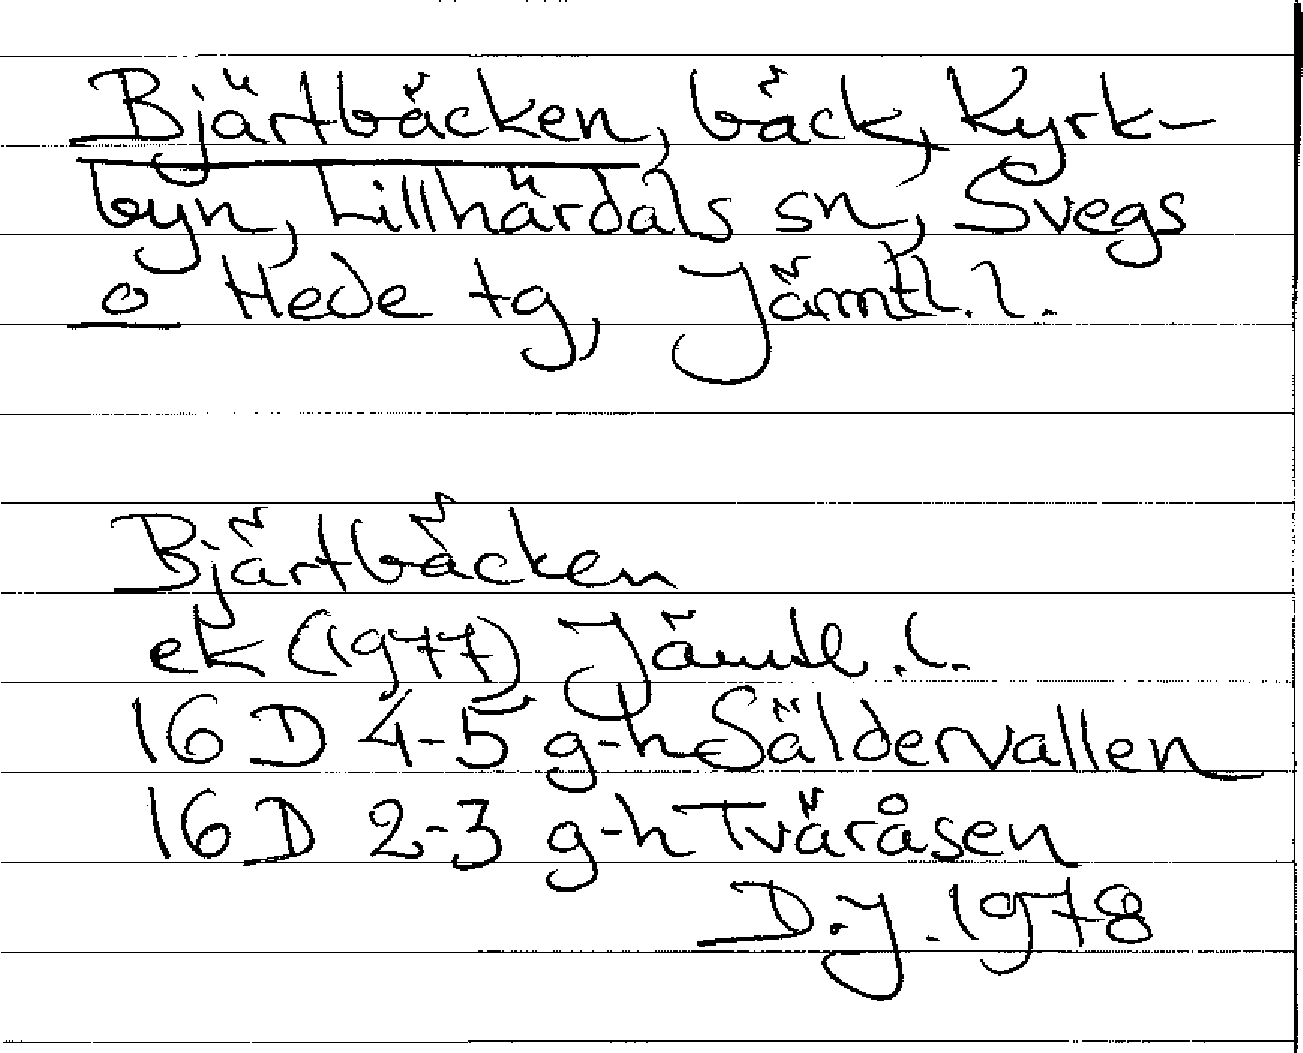 Bjärtbäcken, bäck, Kyrk-
byn, Lillhärdals sn, Svegs
o Hede tg, Jämtl. l.
Bjärtbäcken
ek (1977) Jämtl. l.
16 D 4-5 g-h Säldervallen
16 D 2-3 g-h Tväråsen
D.J. 1978